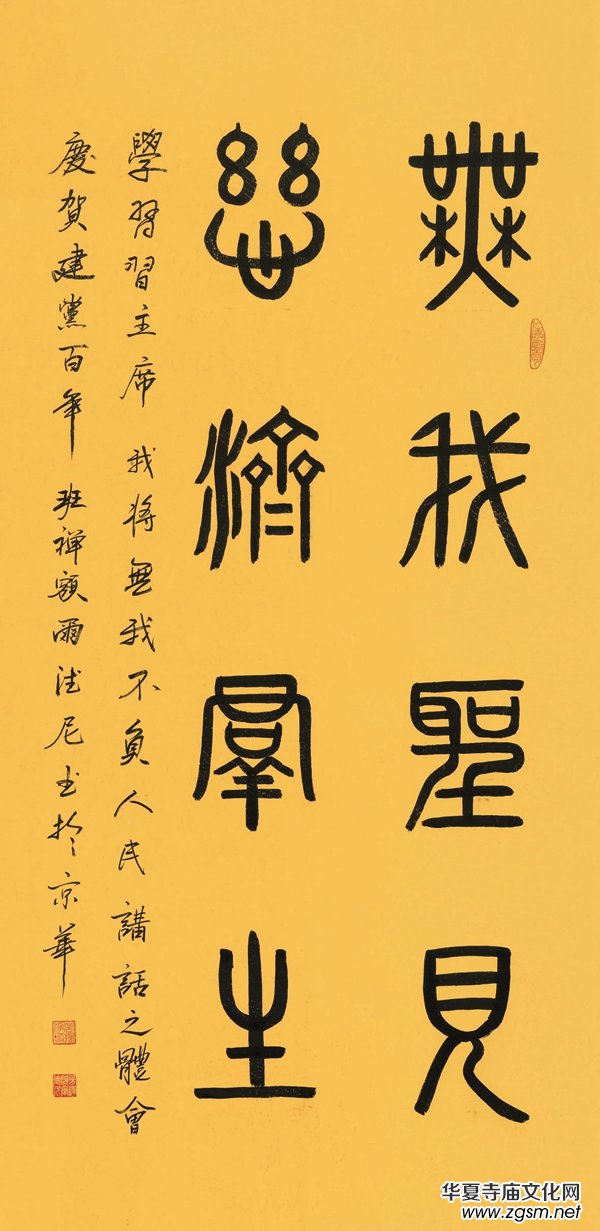 無我聖見
慈濟羣生
學習習主席 我將無我不負人民講話之體會
慶賀建黨百年 班禪額爾德尼書於京華
华夏寺庙文化网
www.zgsm.net